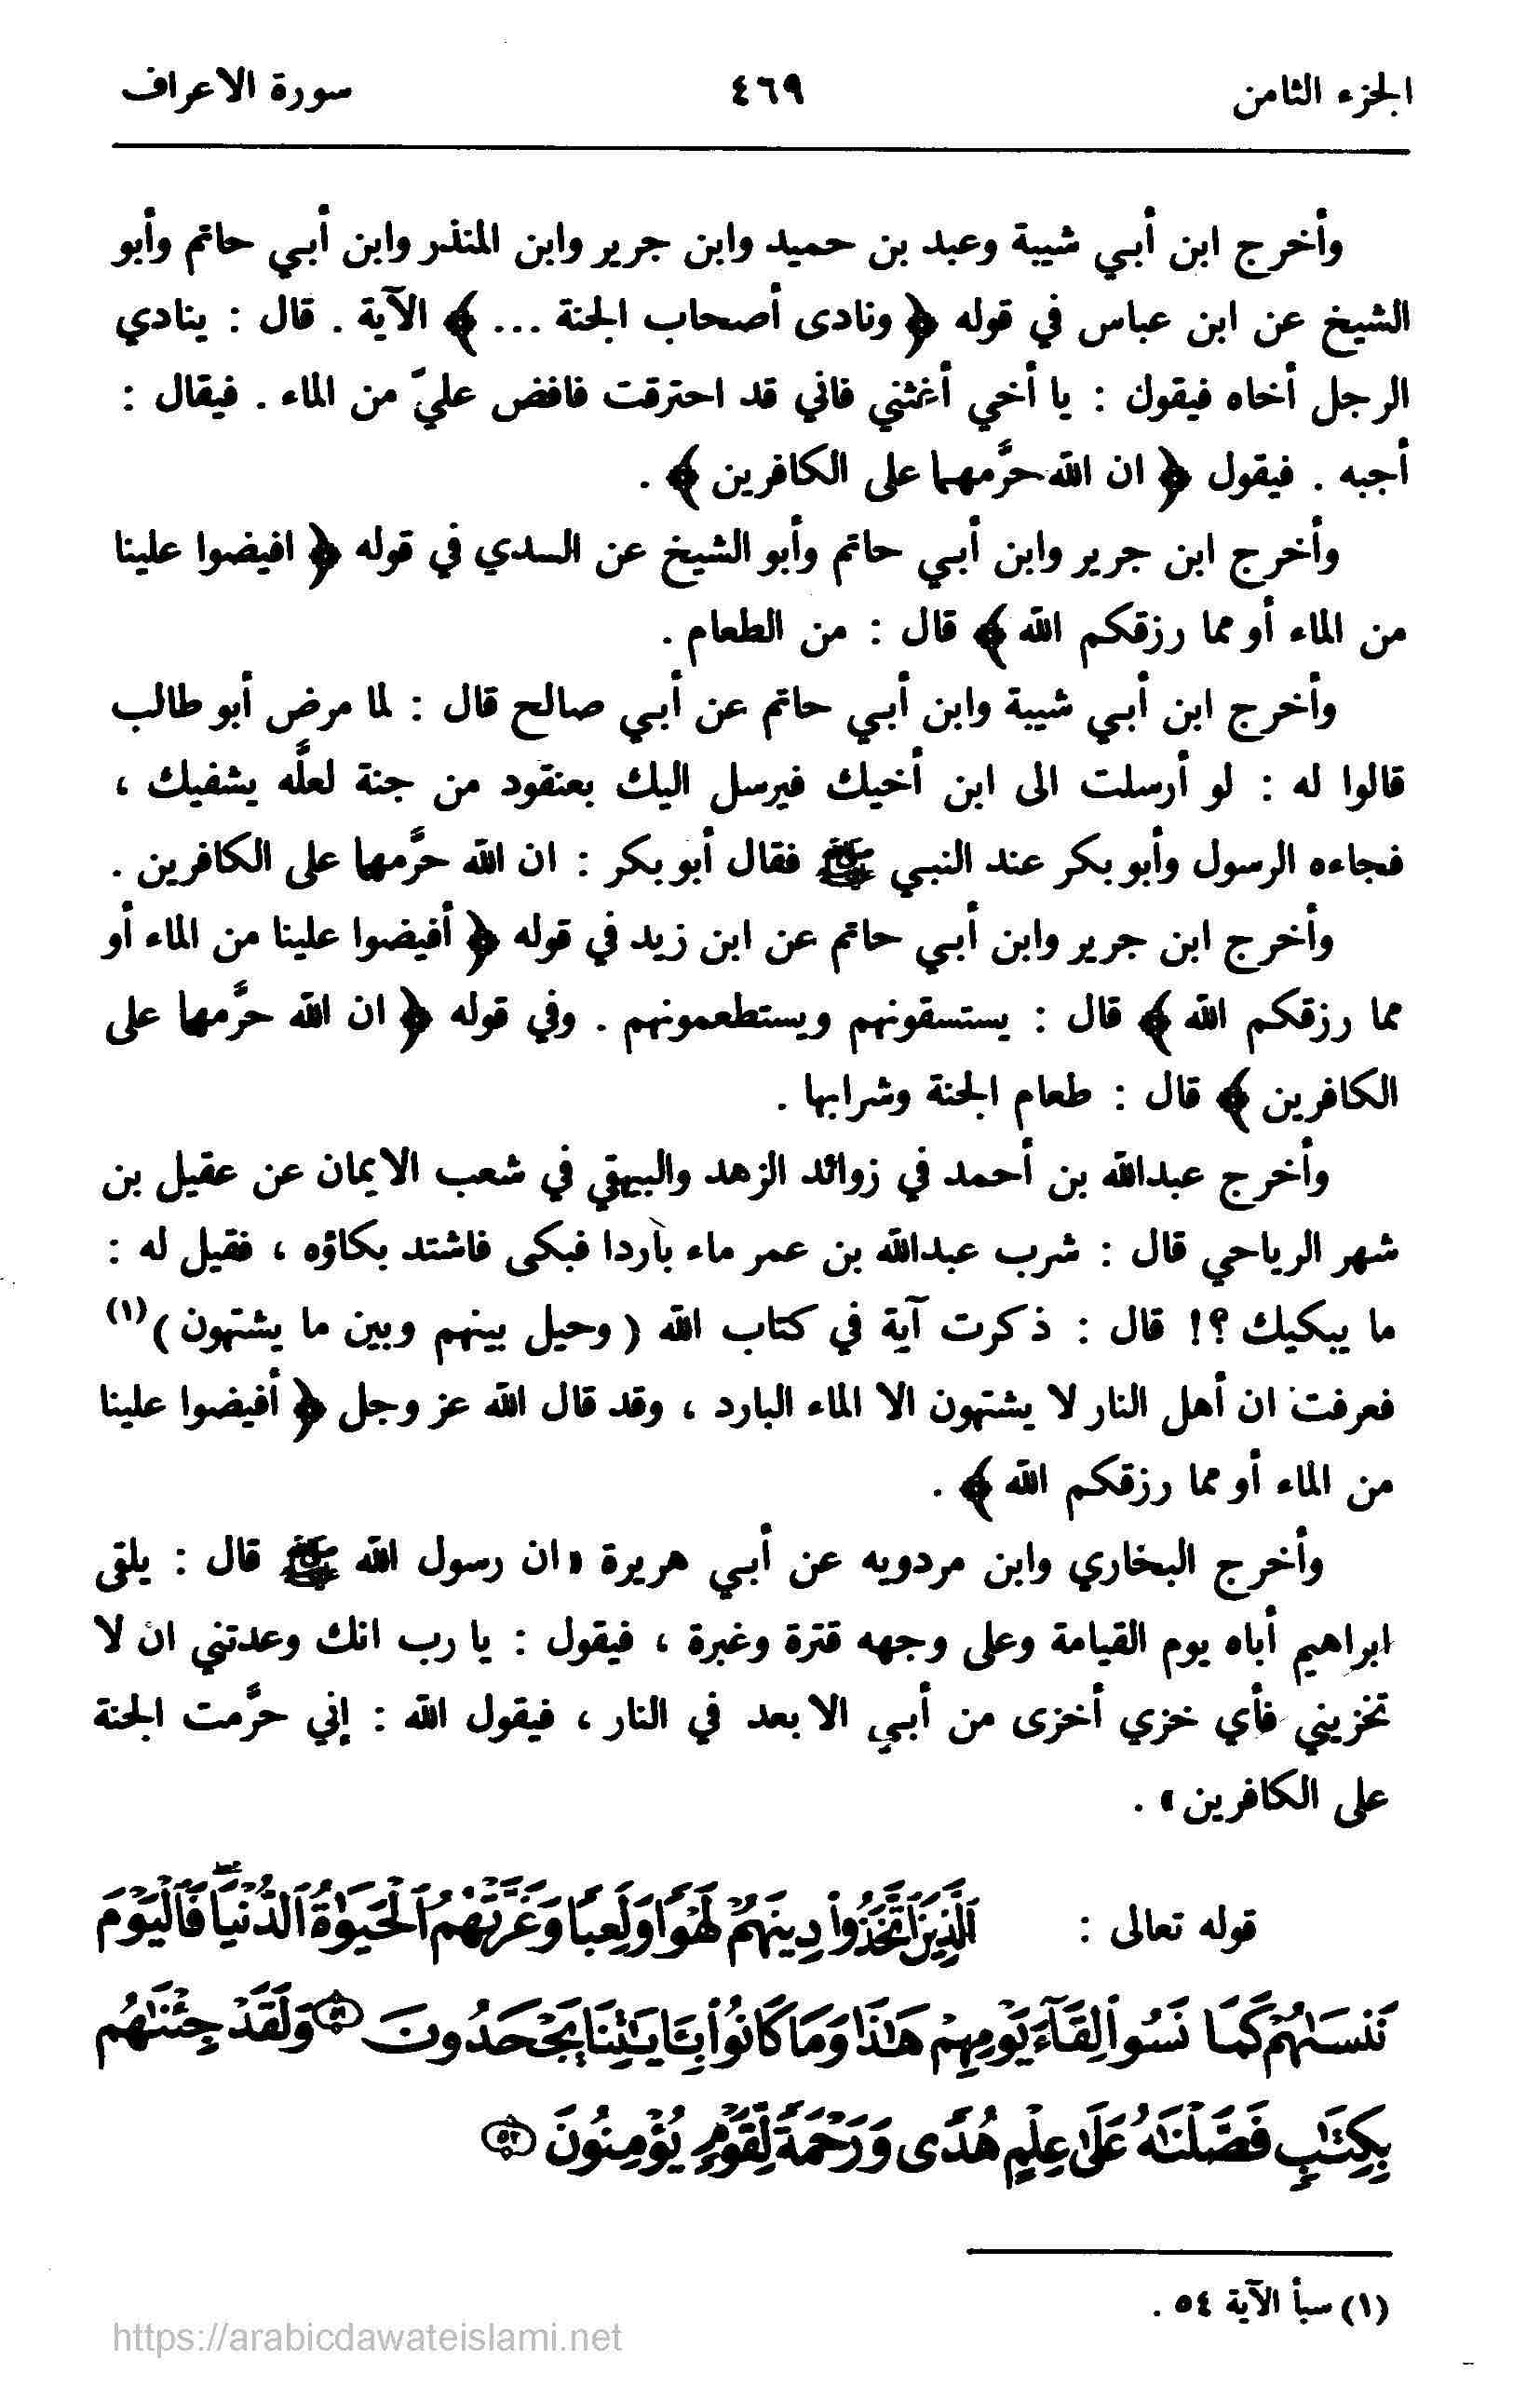 الجزء الثامن ٤٦٩ سورة الاعراف
وأخرج ابن أبي شيبة وعبد بن حميد وابن جرير وابن المنذر وابن أبي حاتم وأبو
الشيخ عن ابن عباس في قوله ﴿ ونادى أصحاب الجنة ... ﴾ الآية . قال : ينادي
الرجل أخاه فيقول : يا أخي أغثني فاني قد احترقت فافض عليّ من الماء . فيقال :
أجبه . فيقول ﴿ ان الله حرَّمهما على الكافرين ﴾ .
وأخرج ابن جرير وابن أبي حاتم وأبو الشيخ عن السدي في قوله ﴿ افيضوا علينا
من الماء أو مما رزقكم الله ﴾ قال : من الطعام .
وأخرج ابن أبي شيبة وابن أبي حاتم عن أبي صالح قال : لما مرض أبو طالب
قالوا له : لو أرسلت الى ابن أخيك فيرسل اليك بعنقود من جنة لعلَّه يشفيك ،
فجاءه الرسول وأبو بكر عند النبي ﷺ فقال أبو بكر : ان الله حرَّمهما على الكافرين .
وأخرج ابن جرير وابن أبي حاتم عن ابن زيد في قوله ﴿ أفيضوا علينا من الماء أو
مما رزقكم الله ﴾ قال : يستسقونهم ويستطعمونهم . وفي قوله ﴿ ان الله حرَّمهما على
الكافرين ﴾ قال : طعام الجنة وشرابها .
وأخرج عبدالله بن أحمد في زوائد الزهد والبيهقي في شعب الايمان عن عقيل بن
شهر الرياحي قال : شرب عبدالله بن عمر ماء باردا فبكى فاشتد بكاؤه ، فقيل له :
ما يبكيك ؟! قال : ذكرت آية في كتاب الله ( وحيل بينهم وبين ما يشتهون )(١)
فعرفت ان أهل النار لا يشتهون الا الماء البارد ، وقد قال الله عز وجل ﴿ أفيضوا علينا
من الماء أو مما رزقكم الله ﴾ .
وأخرج البخاري وابن مردويه عن أبي هريرة « ان رسول الله ﷺ قال : يلقى
ابراهيم أباه يوم القيامة وعلى وجهه قترة وغبرة ، فيقول : يا رب انك وعدتني ان لا
تخزيني فأي خزي أخزى من أبي الابعد في النار ، فيقول الله : إني حرَّمت الجنة
على الكافرين » .
قوله تعالى : ٱلَّذِينَ ٱتَّخَذُوا۟ دِينَهُمْ لَهْوًا وَلَعِبًا وَغَرَّتْهُمُ ٱلْحَيَوٰةُ ٱلدُّنْيَا ۚ فَٱلْيَوْمَ
نَنسَىٰهُمْ كَمَا نَسُوا۟ لِقَآءَ يَوْمِهِمْ هَٰذَا وَمَا كَانُوا۟ بِـَٔايَٰتِنَا يَجْحَدُونَ ۝٥١ وَلَقَدْ جِئْنَٰهُم
بِكِتَٰبٍ فَصَّلْنَٰهُ عَلَىٰ عِلْمٍ هُدًى وَرَحْمَةً لِّقَوْمٍ يُؤْمِنُونَ ۝٥٢
(١) سبأ الآية ٥٤ .
https://arabicdawateislami.net